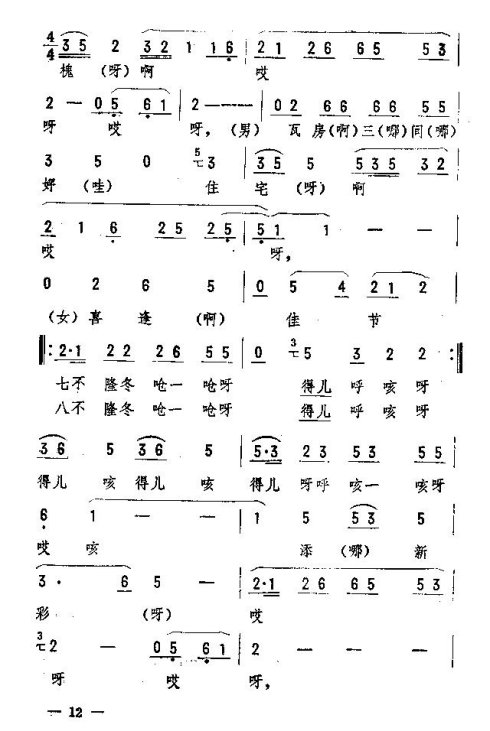 4/4 3 5 2 3 2 1 1 6 | 2 1 2 6 6 5 5 3 |
槐 (呀)啊 哎
2 — 0 5 6 1 | 2 — — — | 0 2 6 6 6 6 5 5 |
呀 哎 呀，(男) 瓦 房(啊)三(哪)间(哪)
3 5 0 3 | 3 5 5 5 3 5 3 2 |
好 (哇) 住 宅 (呀) 啊
2 1 6 2 5 2 5 | 5 1 1 — — |
哎 呀，
0 2 6 5 | 0 5 4 2 1 2 |
(女) 喜 逢 (啊) 佳 节
‖: 2·1 2 2 2 6 5 5 | 0 3 5 3 2 2 :‖
七不 隆冬 呛一 呛呀 得儿 呼 咳 呀
八不 隆冬 呛一 呛呀 得儿 呼 咳 呀
3 6 5 3 6 5 | 5·3 2 3 5 3 5 5 |
得儿 咳 得儿 咳 得儿 呀呼 咳一 咳呀
6 1 — — | 1 5 5 3 5 |
哎 咳 添 (哪) 新
3· 6 5 — | 2·1 2 6 6 5 5 3 |
彩 (呀) 哎
3 2 — 0 5 6 1 | 2 — — |
呀 哎 呀，
— 12 —